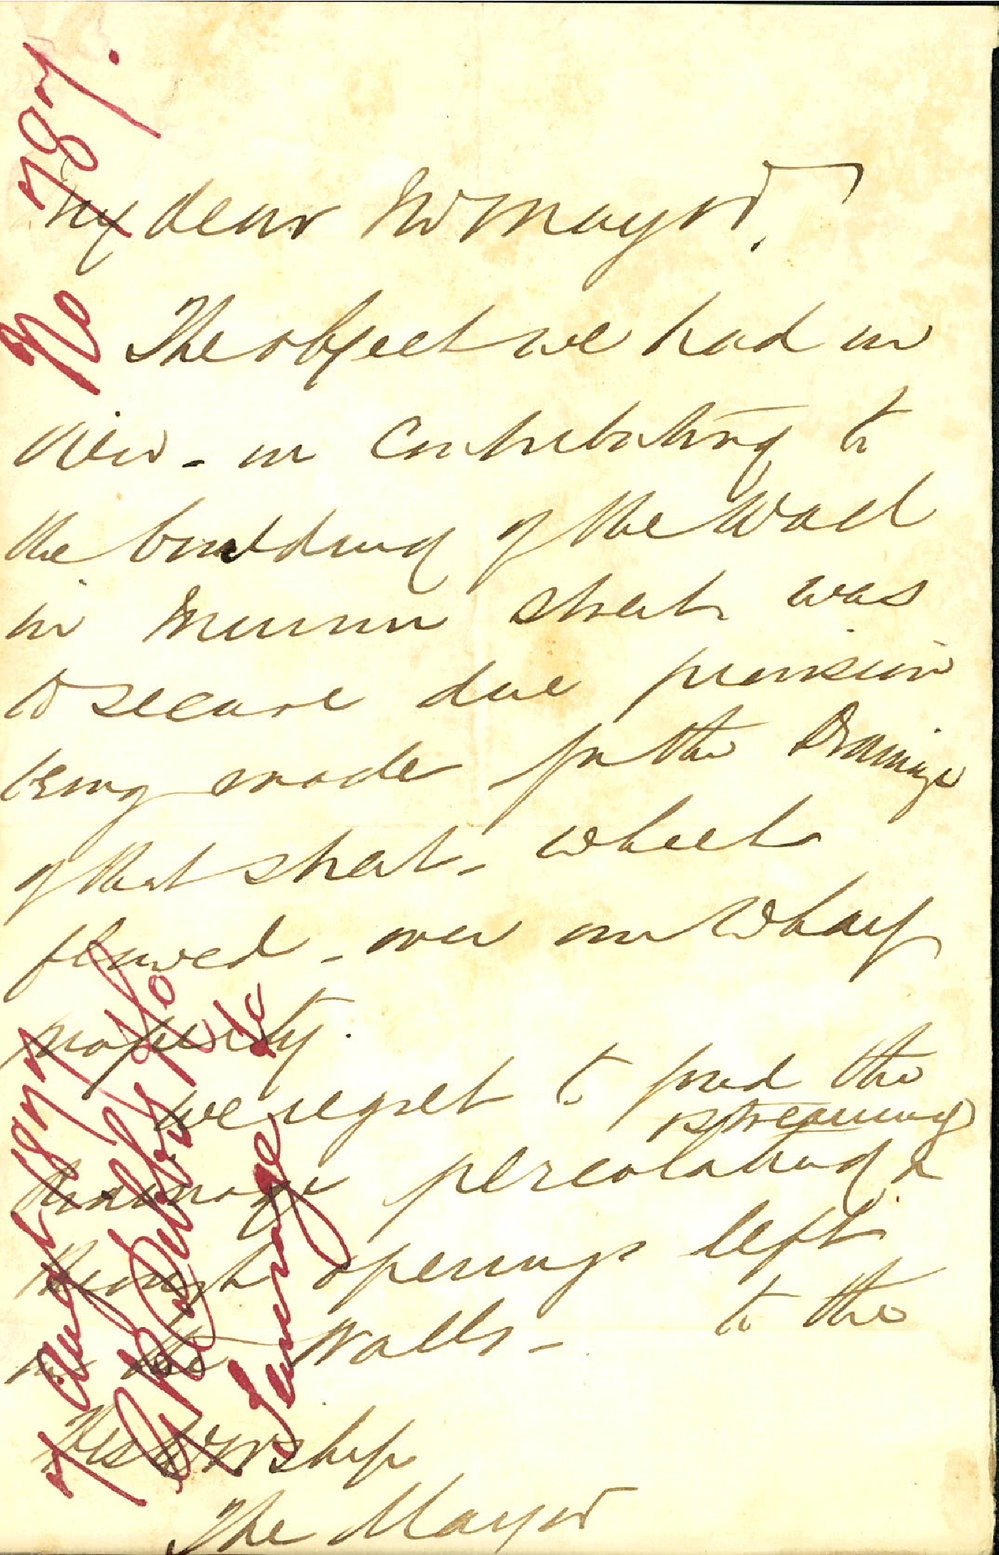 My dear Mr Mayor,
The object we had in
view - in contributing to
the building of the wall
in street was
to secure due provision
being made for the Drainage
of that street - which
flowed - over our Wharf
property.
We regret to find the
streaming
drainage percolating &
through openings left
in the walls - to the
His Worship
The Mayor
No 787.
7 August 1877
Drainage